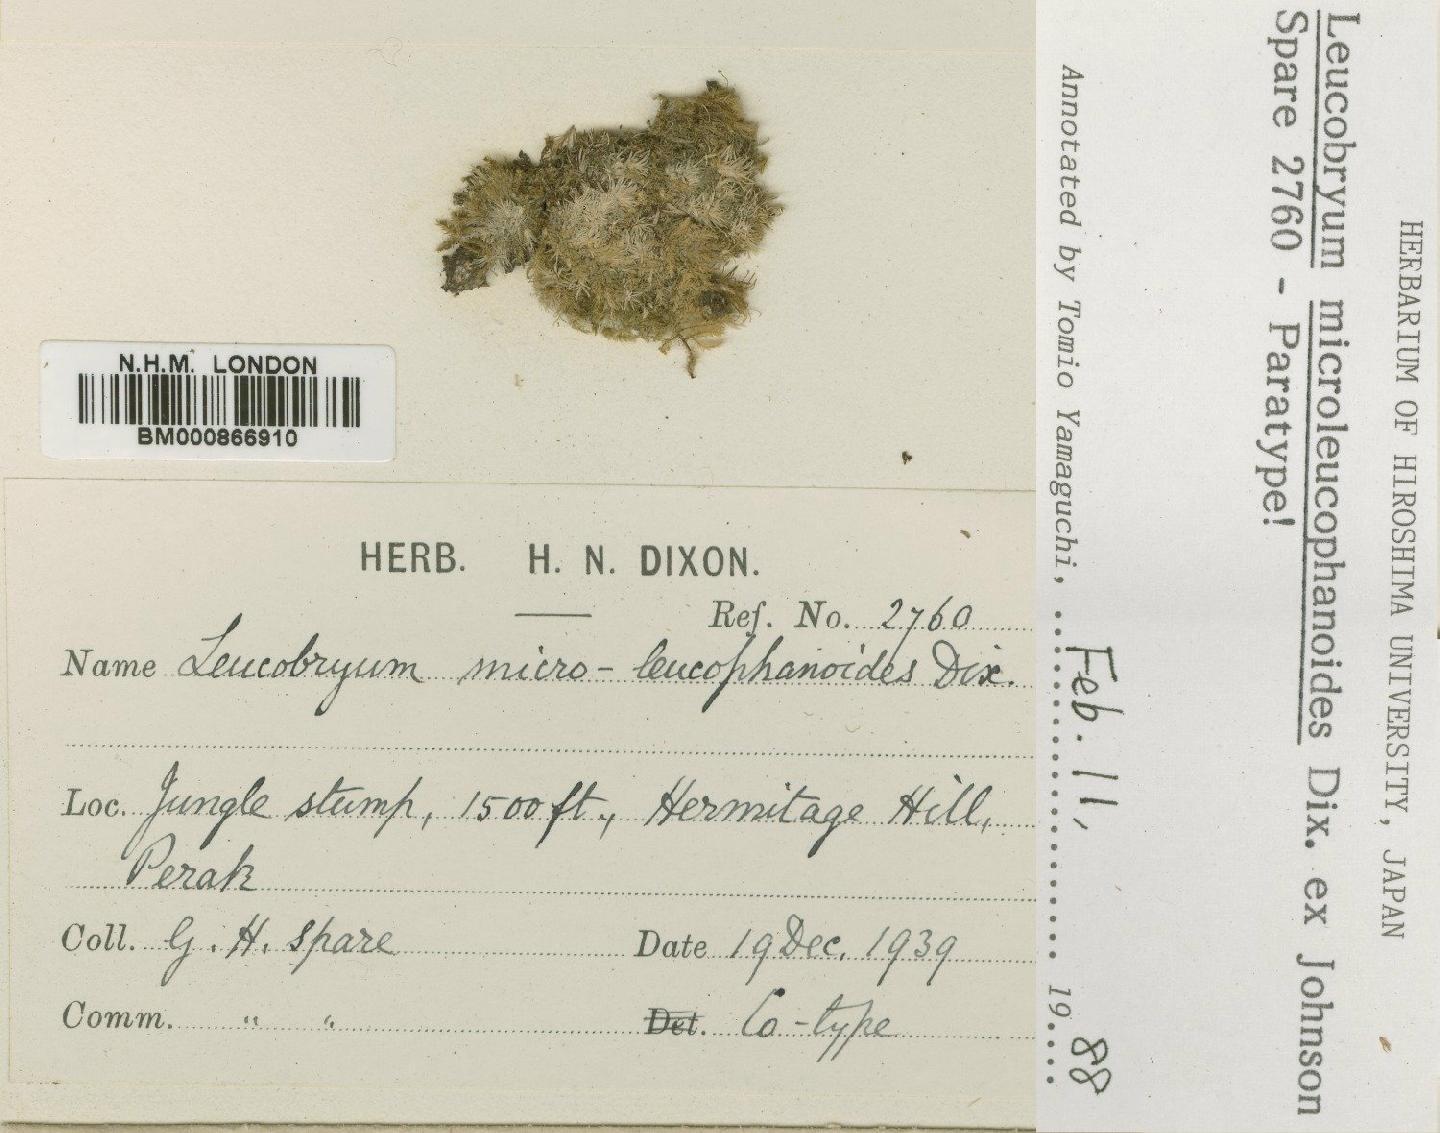 N.H.M. LONDON
BM000866910
HERB. H. N. DIXON.
Ref. No. 2760
Name Leucobryum micro-leucophanoides Dix.
Loc. Jungle stump, 1500 ft., Hermitage Hill,
Perak
Coll. G. H. Spare Date 19 Dec. 1939
Comm. " " Det. Co-type
HERBARIUM OF HIROSHIMA UNIVERSITY, JAPAN
Leucobryum microleucophanoides Dix. ex Johnson
Spare 2760 - Paratype!
Annotated by Tomio Yamaguchi, Feb. 11, 1988